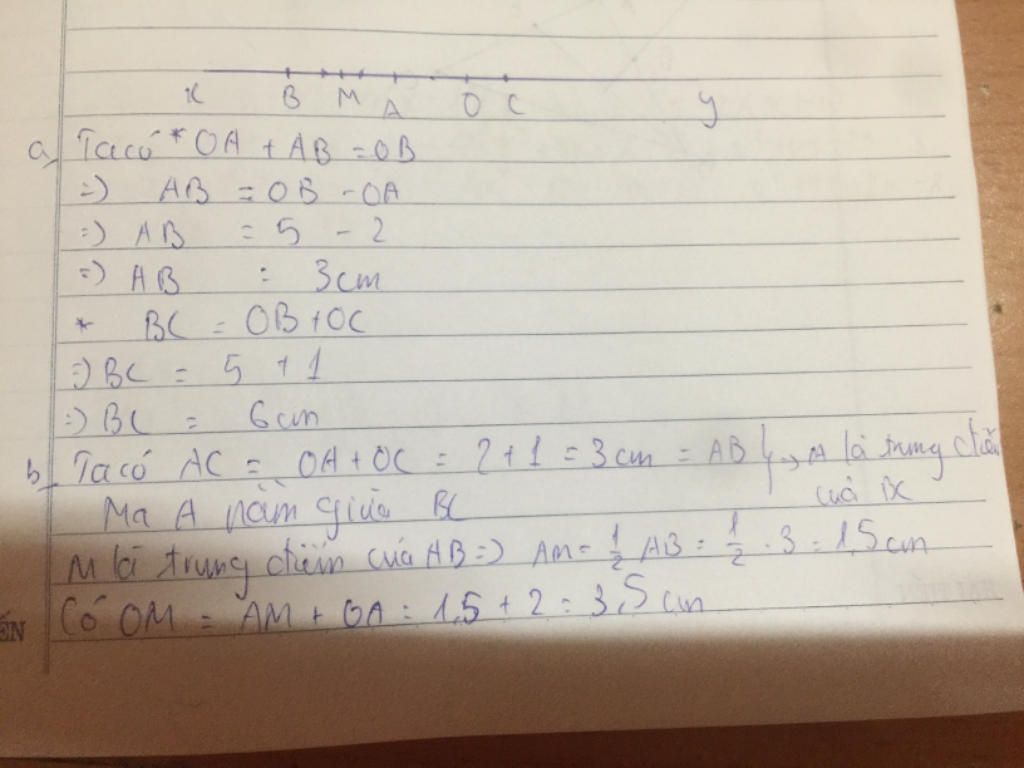 x B M A O C y
a, Ta có * OA + AB = OB
=) AB = OB - OA
=) AB = 5 - 2
=) AB = 3cm
* BC = OB + OC
=) BC = 5 + 1
=) BC = 6cm
b, Ta có AC = OA + OC = 2 + 1 = 3cm = AB } => A là trung điểm
Mà A nằm giữa BC của BC
M là trung điểm của AB =) AM = 1/2 AB = 1/2 . 3 = 1,5cm
Có OM = AM + OA = 1,5 + 2 = 3,5 cm
ẾN